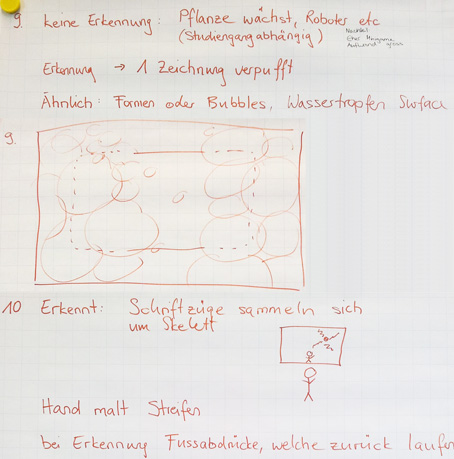 9. keine Erkennung: Pflanze wächst, Roboter etc
(Studiengangabhängig)
Nachteil
Eher Hologramme
Aufwand gross
Erkennung → 1 Zeichnung verpufft
Ähnlich: Formen oder Bubbles, Wassertropfen Surface
9.
10 Erkennt: Schriftzüge sammeln sich
um Skelett
Hand malt Streifen
bei Erkennung Fussabdrücke, welche zurück laufen